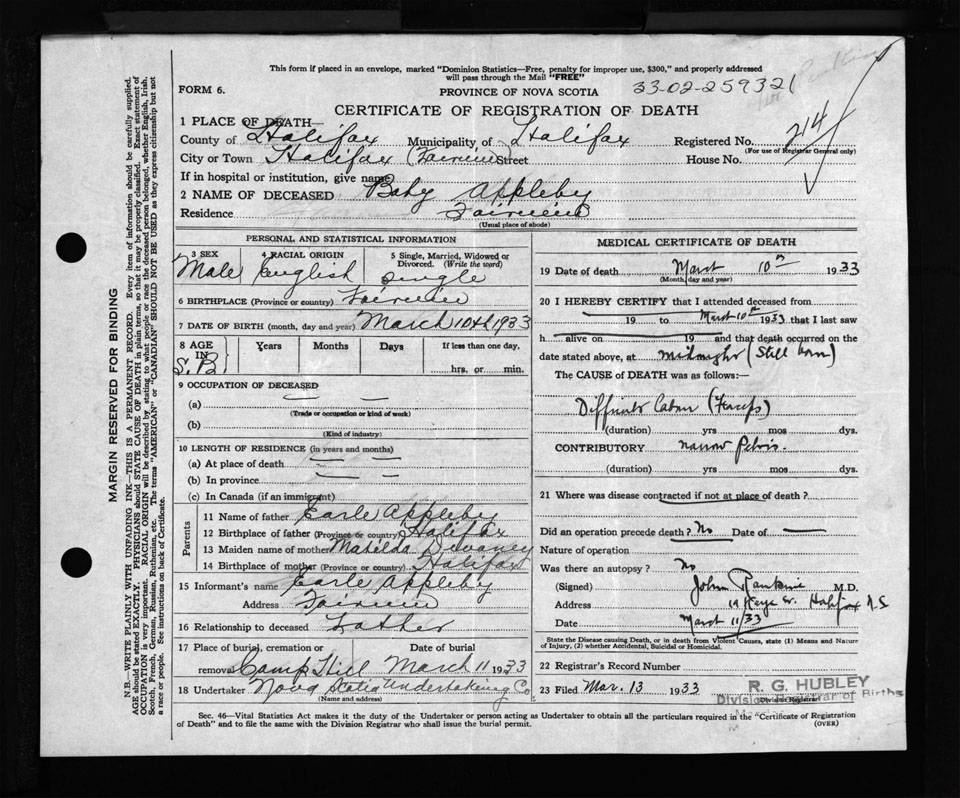 This form if placed in an envelope, marked "Dominion Statistics—Free, penalty for improper use, $300," and properly addressed
will pass through the Mail "FREE"
FORM 6.
PROVINCE OF NOVA SCOTIA
33-02-259321
CERTIFICATE OF REGISTRATION OF DEATH
1 PLACE OF DEATH—
County of Halifax Municipality of Halifax Registered No. 214
(For use of Registrar General only)
City or Town Halifax (Fairview) Street House No.
If in hospital or institution, give name
2 NAME OF DECEASED Baby Appleby
Residence Fairview
(Usual place of abode)
MARGIN RESERVED FOR BINDING
N.B.—WRITE PLAINLY WITH UNFADING INK—THIS IS A PERMANENT RECORD. Every item of information should be carefully supplied.
AGE should be stated EXACTLY. PHYSICIANS should STATE CAUSE OF DEATH in plain terms, so that it may be properly classified. Exact statement of
OCCUPATION is very important. RACIAL ORIGIN will be described by stating to what people or race the deceased person belonged, whether English, Irish,
Scotch, French, German, Russian, Ruthenian, etc. The terms "AMERICAN" or "CANADIAN" SHOULD NOT BE USED as they express citizenship but not
a race or people. See instructions on back of Certificate.
PERSONAL AND STATISTICAL INFORMATION
3 SEX 4 RACIAL ORIGIN 5 Single, Married, Widowed or
Divorced. (Write the word)
Male English Single
6 BIRTHPLACE (Province or country) Fairview
7 DATE OF BIRTH (month, day and year) March 10th 1933
8 AGE IN Years Months Days If less than one day,
S.B. hrs. or min.
9 OCCUPATION OF DECEASED
(a) — —
(Trade or occupation or kind of work)
(b)
(Kind of industry)
10 LENGTH OF RESIDENCE (in years and months)
(a) At place of death — —
(b) In province — —
(c) In Canada (if an immigrant)
Parents
11 Name of father Earle Appleby
12 Birthplace of father (Province or country) Halifax
13 Maiden name of mother Matilda Duvaney
14 Birthplace of mother (Province or country) Halifax
15 Informant's name Earle Appleby
Address Fairview
16 Relationship to deceased Father
17 Place of burial, cremation or Date of burial
removal Camp Hill March 11 1933
18 Undertaker Nova Scotia Undertaking Co
(Name and address)
MEDICAL CERTIFICATE OF DEATH
19 Date of death March 10th 1933
(Month, day and year)
20 I HEREBY CERTIFY that I attended deceased from
19 to March 10th 1933 that I last saw
h alive on 19 and that death occurred on the
date stated above, at midnight (Still born)
The CAUSE of DEATH was as follows:—
Difficult labour (Forceps)
(duration) yrs mos dys.
CONTRIBUTORY narrow Pelvis.
(duration) yrs mos dys.
21 Where was disease contracted if not at place of death?
Did an operation precede death? No Date of —
Nature of operation
Was there an autopsy? No
(Signed) John Rankine M.D.
Address 19 Kaye St. Halifax N.S
Date March 11/33
State the Disease causing Death, or in death from Violent Causes, state (1) Means and Nature
of Injury, (2) whether Accidental, Suicidal or Homicidal.
22 Registrar's Record Number
23 Filed Mar. 13 1933 R. G. HUBLEY
Division Registrar of Births
(Division Registrar)
Sec. 46—Vital Statistics Act makes it the duty of the Undertaker or person acting as Undertaker to obtain all the particulars required in the "Certificate of Registration
of Death" and to file the same with the Division Registrar who shall issue the burial permit.
(OVER)